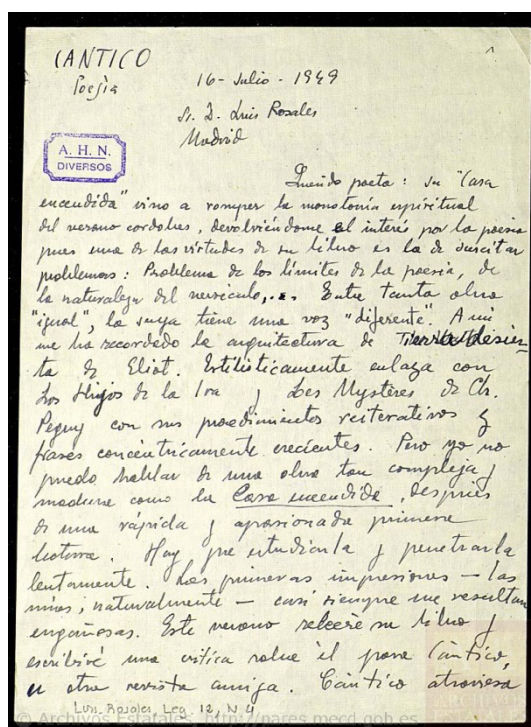 CANTICO
Poesía
16 - Julio - 1949
Sr. D. Luis Rosales
Madrid
A. H. N.
DIVERSOS
Querido poeta: su "Casa
encendida" vino a romper la monotonía espiritual
del verano cordobes, devolviéndome el interés por la poesía
pues una de las virtudes de su libro es la de suscitar
problemas: Problema de los límites de la poesía, de
la naturaleza del versículo,... Entre tanta obra
"igual", la suya tiene una voz "diferente". A mi
me ha recordado la arquitectura de Tierra desier-
ta de Eliot. Estilísticamente enlaza con
Los Hijos de la Ira y Les Mystères de Ch.
Peguy con sus procedimientos reiterativos y
frases concéntricamente crecientes. Pero yo no
puedo hablar de una obra tan compleja y
madura como la Casa encendida, después
de una rápida y apasionada primera
lectura. Hay que estudiarla y penetrarla
lentamente. Las primeras impresiones — las
mías, naturalmente — casi siempre me resultan
engañosas. Este verano releeré su libro y
escribiré una crítica sobre él para Cántico,
u otra revista amiga. Cántico atraviesa
Luis Rosales Leg. 12, N 4
© Archivos Estatales, http://pares.mecd.gob.es